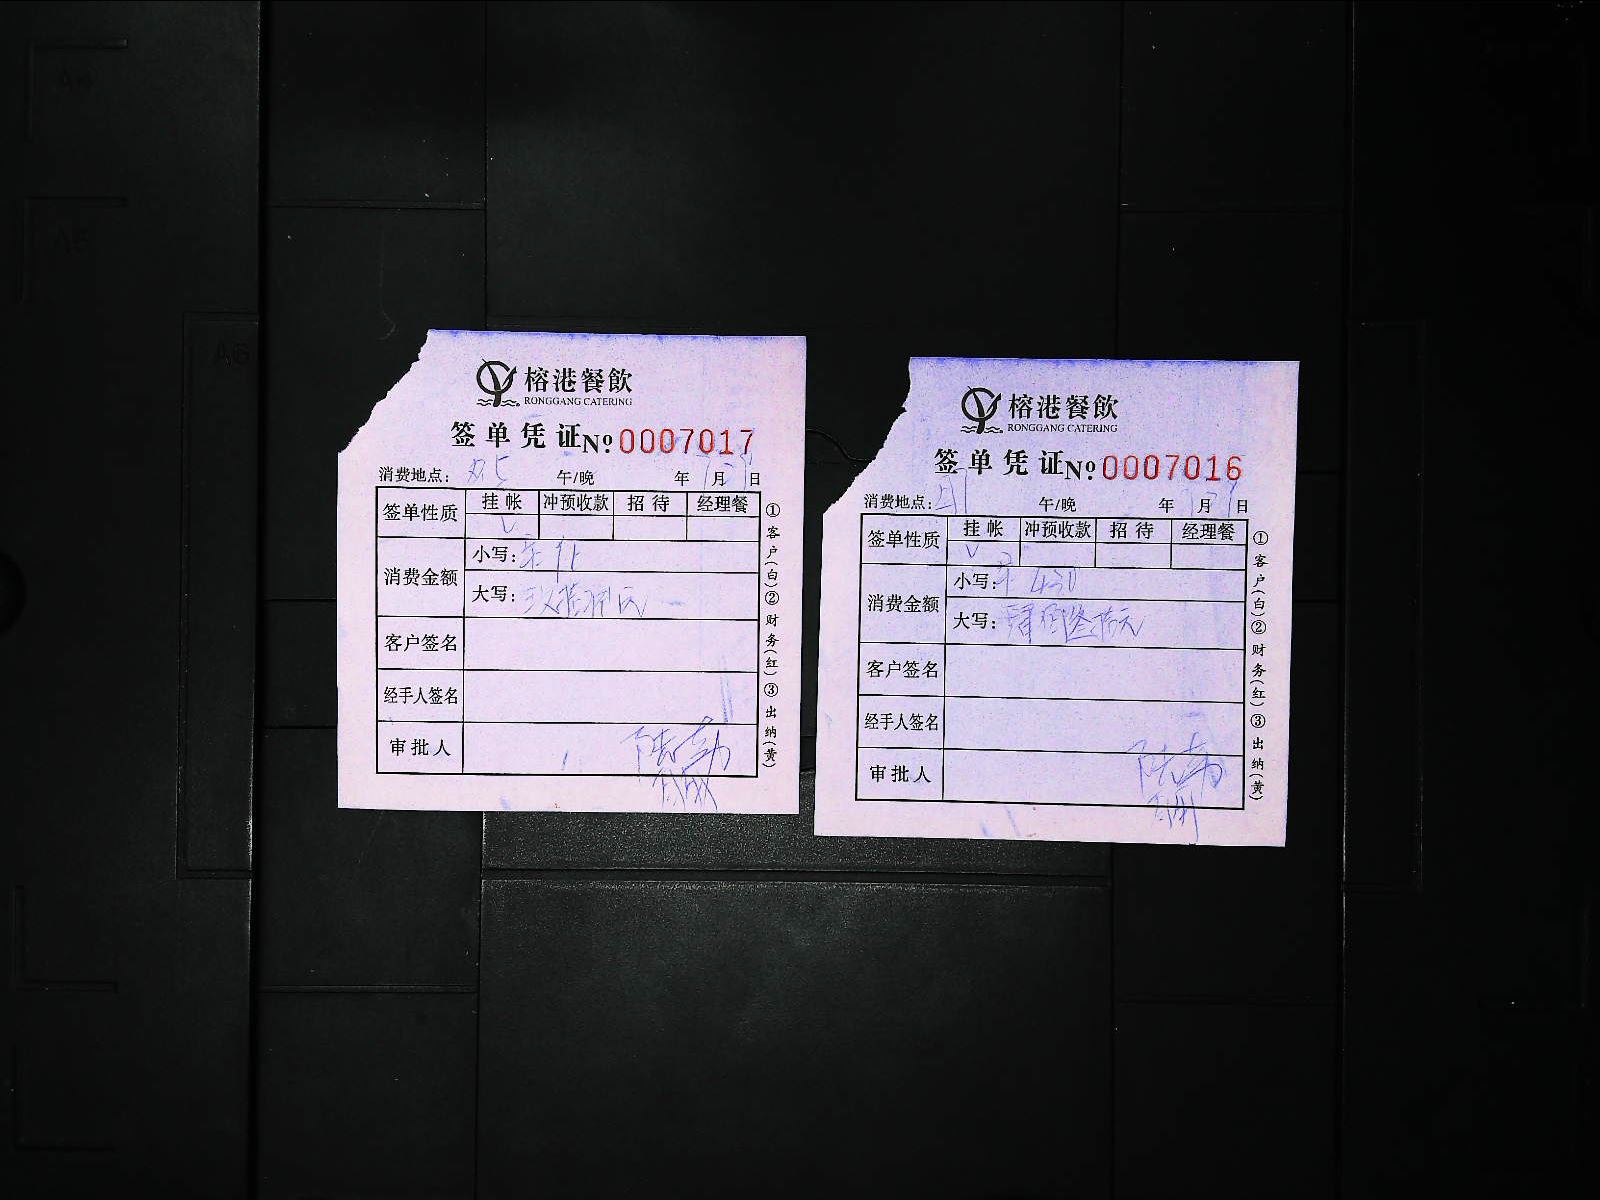 榕港餐飲
RONGGANG CATERING
签单凭证 №0007017
消费地点: 午/晚 年 月 日
签单性质 挂帐 冲预收款 招待 经理餐
V
消费金额
小写:
大写:
客户签名
经手人签名
审批人
①客户(白)②财务(红)③出纳(黄)
榕港餐飲
RONGGANG CATERING
签单凭证 №0007016
消费地点: 午/晚 年 月 日
签单性质 挂帐 冲预收款 招待 经理餐
V
消费金额
小写: 430
大写: 肆佰叁拾元
客户签名
经手人签名
审批人
①客户(白)②财务(红)③出纳(黄)
A6
A5